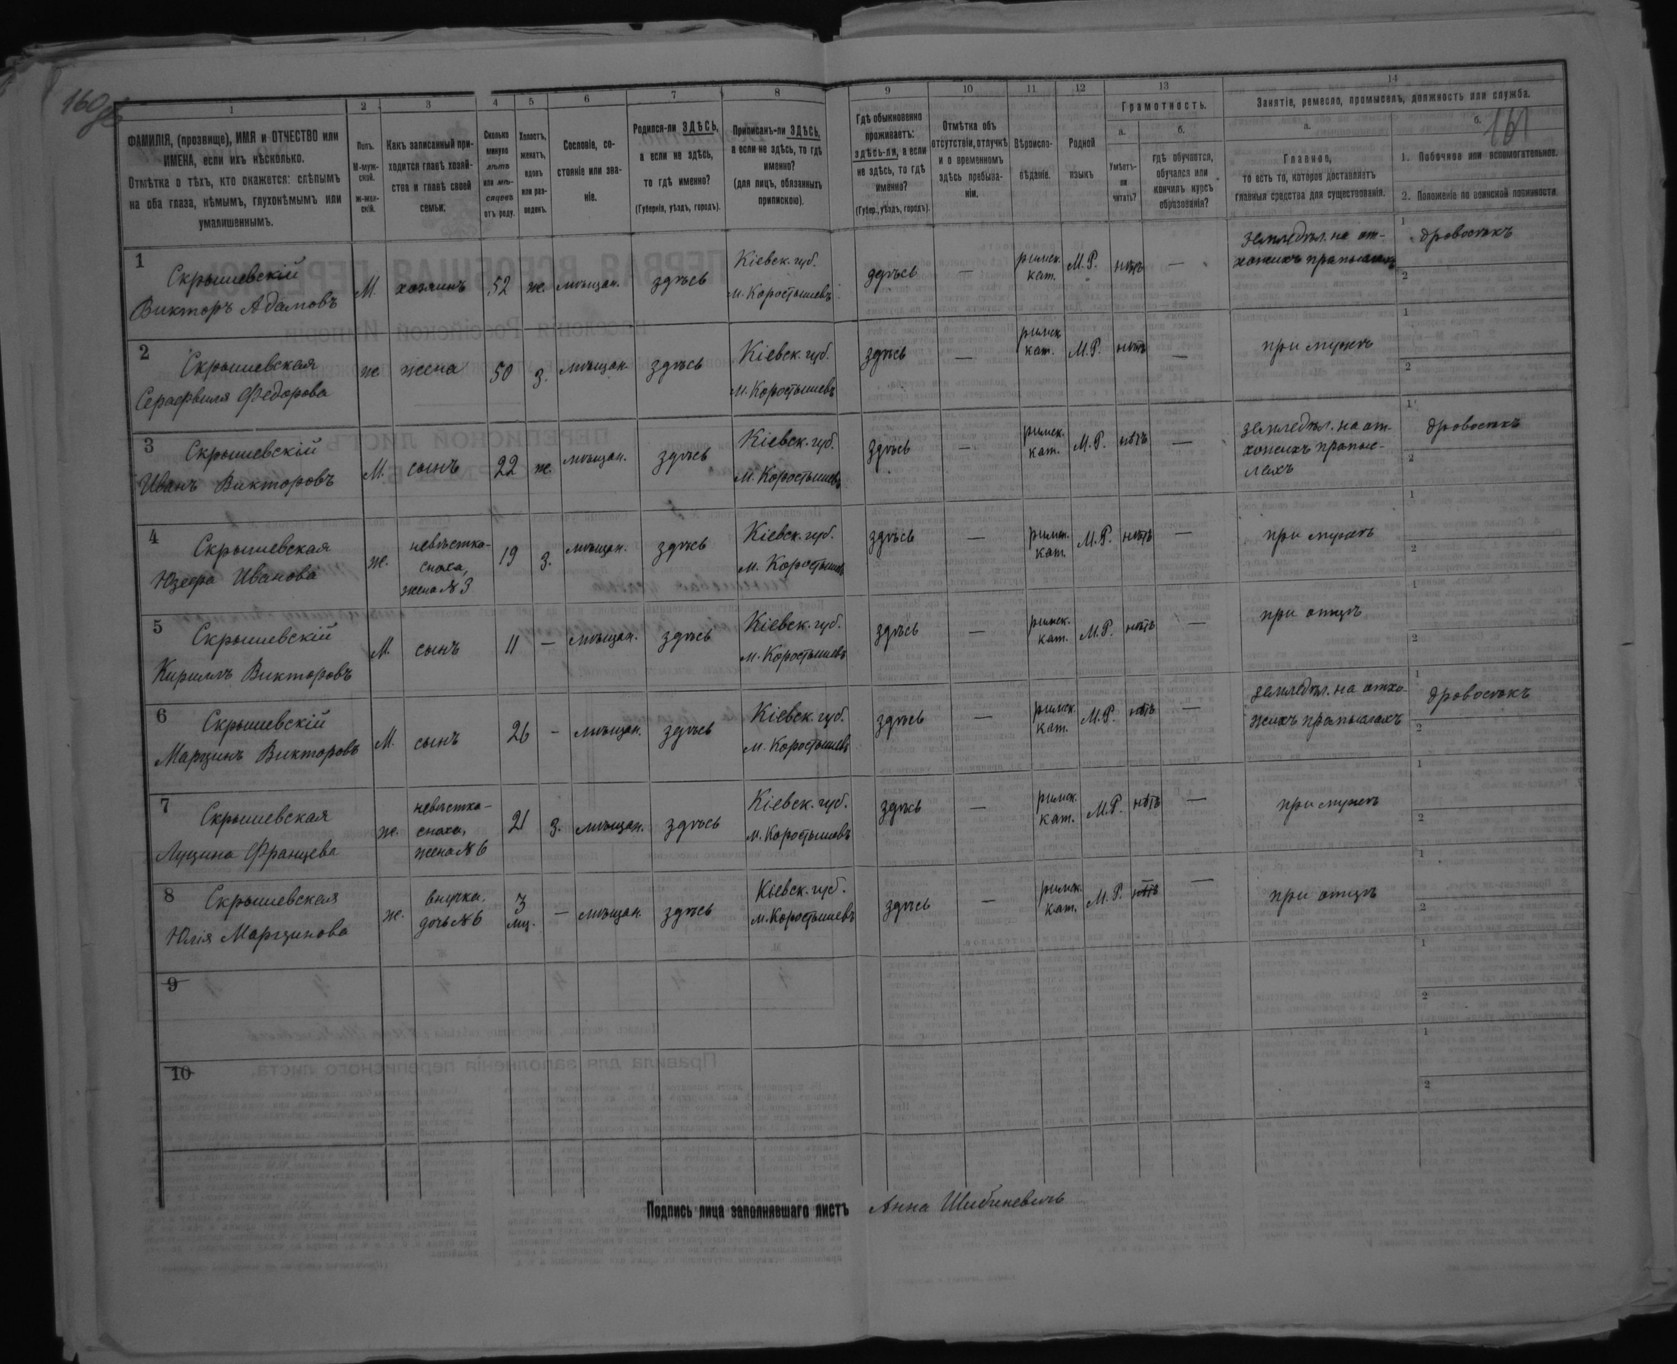 160об
161
1 2 3 4 5 6 7 8 9 10 11 12 13 14
ФАМИЛІЯ, (прозвище), ИМЯ и ОТЧЕСТВО или
ИМЕНА, если ихъ нѣсколько.
Отмѣтка о тѣхъ, кто окажется: слѣпымъ
на оба глаза, нѣмымъ, глухонѣмымъ или
умалишеннымъ.
Полъ.
М-муж-
ской.
Ж-жен-
скій.
Какъ записанный при-
ходится главѣ хозяй-
ства и главѣ своей
семьи.
Сколько
минуло
лѣтъ
или мѣ-
сяцевъ
отъ роду.
Холостъ,
женатъ,
вдовъ
или раз-
веденъ.
Сословіе, со-
стояніе или зва-
ніе.
Родился-ли ЗДѢСЬ,
а если не здѣсь,
то гдѣ именно?
(Губернія, уѣздъ, городъ).
Приписанъ-ли ЗДѢСЬ,
а если не здѣсь, то гдѣ
именно?
(для лицъ, обязанныхъ
припискою).
Гдѣ обыкновенно
проживаетъ:
здѣсь-ли, а если
не здѣсь, то гдѣ
именно?
(Губер., уѣздъ, городъ).
Отмѣтка объ
отсутствіи, отлучкѣ
и о временномъ
здѣсь пребыва-
ніи.
Вѣроиспо-
вѣданіе.
Родной
языкъ
Грамотность.
а.
Умѣетъ-
ли
читать?
б.
гдѣ обучается,
обучался или
кончилъ курсъ
образованія?
Занятія, ремесло, промыселъ, должность или служба.
а.
Главное,
то есть то, которое доставляетъ
главныя средства для существованія.
б.
1. Побочное или вспомогательное.
2. Положеніе по воинской повинности
1
Скрышевскій
Викторъ Адамовъ
М. хозяинъ 52 ж. мѣщан. здѣсь
Кіевск. губ.
м. Коростышевъ
здѣсь —
римск.
кат.
М.Р. нѣтъ —
земледѣл. на от-
хожихъ промыслахъ
1 дровосѣкъ
2
2
Скрышевская
Серафвиля Федорова
ж жена 50 з. мѣщан. здѣсь
Кіевск. губ.
м. Коростышевъ
здѣсь —
римск.
кат.
М.Р. нѣтъ —
при мужѣ
1
2
3
Скрышевскій
Иванъ Викторовъ
М. сынъ 22 ж. мѣщан. здѣсь
Кіевск. губ.
м. Коростышевъ
здѣсь —
римск.
кат.
М.Р. нѣтъ —
земледѣл. на от-
хожихъ промыс-
лахъ
1 дровосѣкъ
2
4
Скрышевская
Юзефа Иванова
ж.
невѣстка-
сноха,
жена № 3
19 з. мѣщан. здѣсь
Кіевск. губ.
м. Коростышевъ
здѣсь —
римск.
кат.
М.Р. нѣтъ —
при мужѣ
1
2
5
Скрышевскій
Кириллъ Викторовъ
М. сынъ 11 — мѣщан. здѣсь
Кіевск. губ.
м. Коростышевъ
здѣсь —
римск.
кат.
М.Р. нѣтъ —
при отцѣ
1
2
6
Скрышевскій
Марцинъ Викторовъ
М. сынъ 26 — мѣщан. здѣсь
Кіевск. губ.
м. Коростышевъ
здѣсь —
римск.
кат.
М.Р. нѣтъ —
земледѣл. на отхо-
жихъ промыслахъ
1 дровосѣкъ
2
7
Скрышевская
Луцина Францева
ж.
невѣстка-
сноха,
жена № 6
21 з. мѣщан. здѣсь
Кіевск. губ.
м. Коростышевъ
здѣсь —
римск.
кат.
М.Р. нѣтъ —
при мужѣ
1
2
8
Скрышевская
Юлія Марцинова
ж.
внучка,
дочь № 6
3
мц.
— мѣщан. здѣсь
Кіевск. губ.
м. Коростышевъ
здѣсь —
римск.
кат.
М.Р. нѣтъ —
при отцѣ
1
2
9
1
2
10
1
2
Подпись лица заполнявшаго листъ Анна Шибиневичъ